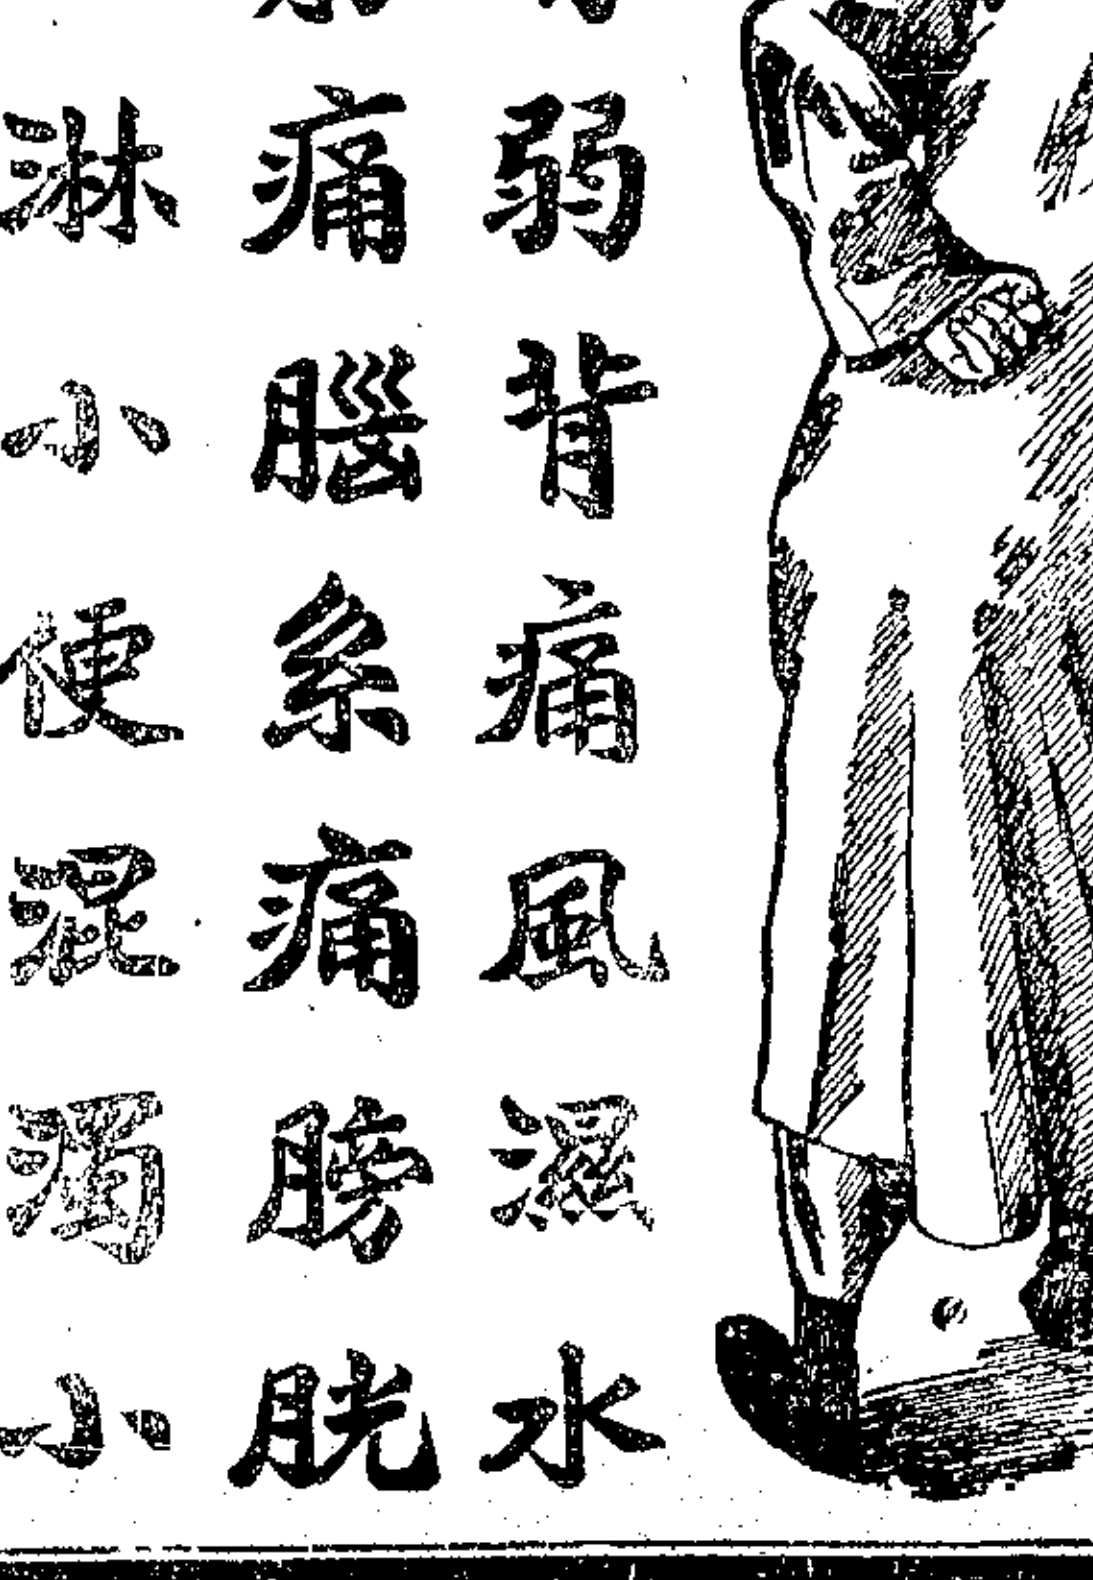 弱背痛風濕水
痛腦系痛膀胱
淋小便混濁小